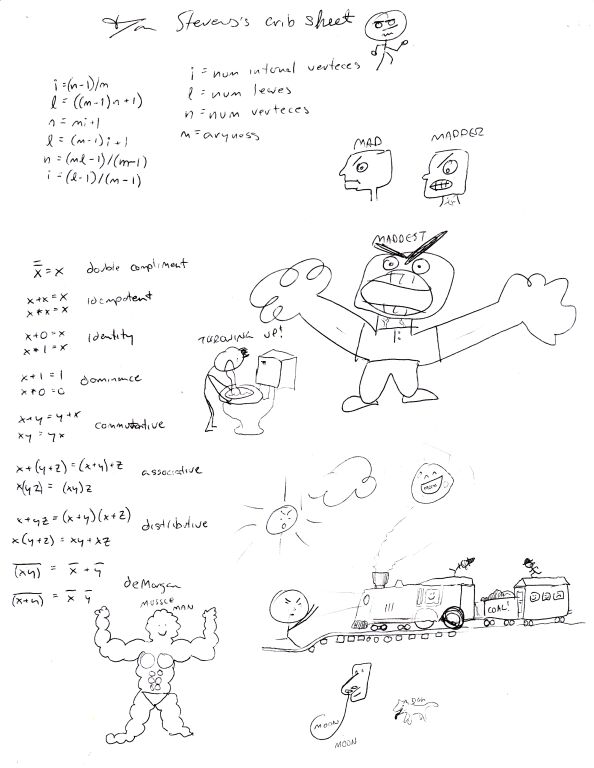 Stevens's crib sheet
i = (n-1)/m
l = ((m-1)n+1)
n = mi+1
l = (m-1)i+1
n = (ml-1)/(m-1)
i = (l-1)/(m-1)
i = num internal verteces
l = num leaves
n = num verteces
m = aryness
MAD
MADDER
MADDEST
x̿ = x double compliment
x+x = x
x*x = x
idempotent
x+0 = x
x*1 = x
identity
x+1 = 1
x*0 = 0
dominance
x+y = y+x
xy = yx
commutative
x+(y+z) = (x+y)+z
x(yz) = (xy)z
associative
x+yz = (x+y)(x+z)
x(y+z) = xy+xz
distributive
(x̅y̅) = x̅ + y̅
(x̅+̅y̅) = x̅ y̅
deMorgan
THROWING UP!
MUSSCLE
MAN
MOON
COAL!
MOON
MOON
DOG